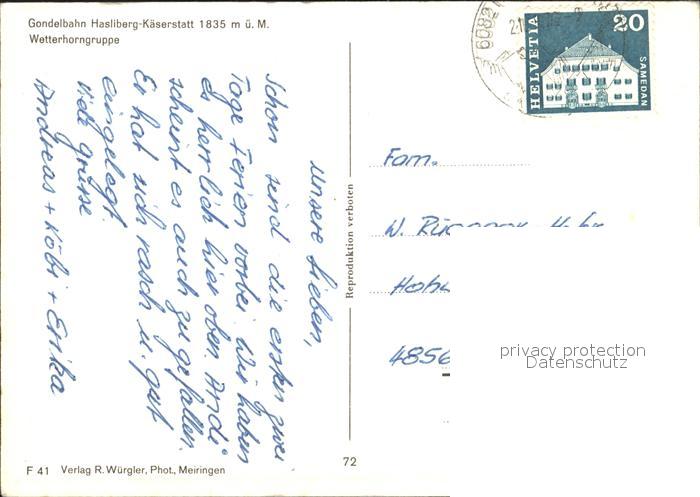 Gondelbahn Hasliberg-Käserstatt 1835 m ü. M.
Wetterhorngruppe
Unsere Lieben,
Schon sind die ersten zwei
Tage Ferien vorbei. Wir haben
es herrlich hier oben. Andi
scheint es auch zu gefallen.
Er hat sich rasch u. gut
eingelegt.
Viele Grüsse
Andreas + Köbi + Erika
Reproduktion verboten
6082
HELVETIA
20
SAMEDAN
Fam.
W.
4856
privacy protection
Datenschutz
F 41 Verlag R. Würgler, Phot., Meiringen
72